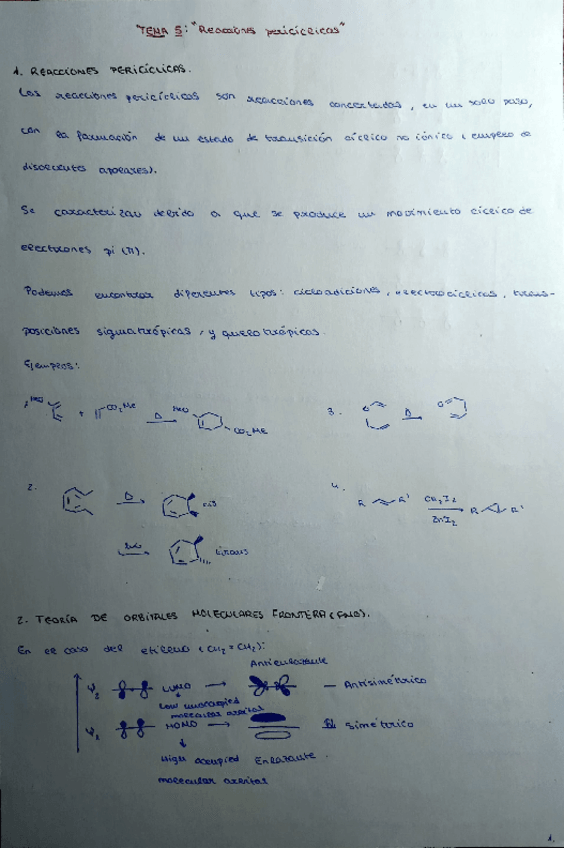 TEMA 5: "Reacciones pericíclicas"
1. REACCIONES PERICÍCLICAS.
Las reacciones pericíclicas son reacciones concertadas, en un solo paso,
con la formación de un estado de transición cíclico no iónico (empleo de
disolventes apolares).
Se caracterizan debido a que se produce un movimiento cíclico de
electrones pi (π).
Podemos encontrar diferentes tipos: cicloadiciones, electrocíclicas, trans-
posiciones sigmatrópicas, y quelotrópicas.
Ejemplos:
MeO + CO2Me Δ MeO CO2Me
3. O Δ O
2. Δ cis
trans
4. R R' CH2I2 ZnI2 R R'
2. TEORÍA DE ORBITALES MOLECULARES FRONTERA (FMO).
En el caso del etileno (CH2=CH2):
Antienlazante
Ψ2 LUMO → — Antisimétrico
Low unoccupied
molecular orbital
Ψ1 HOMO → Simétrico
High occupied Enlazante.
molecular orbital
1.